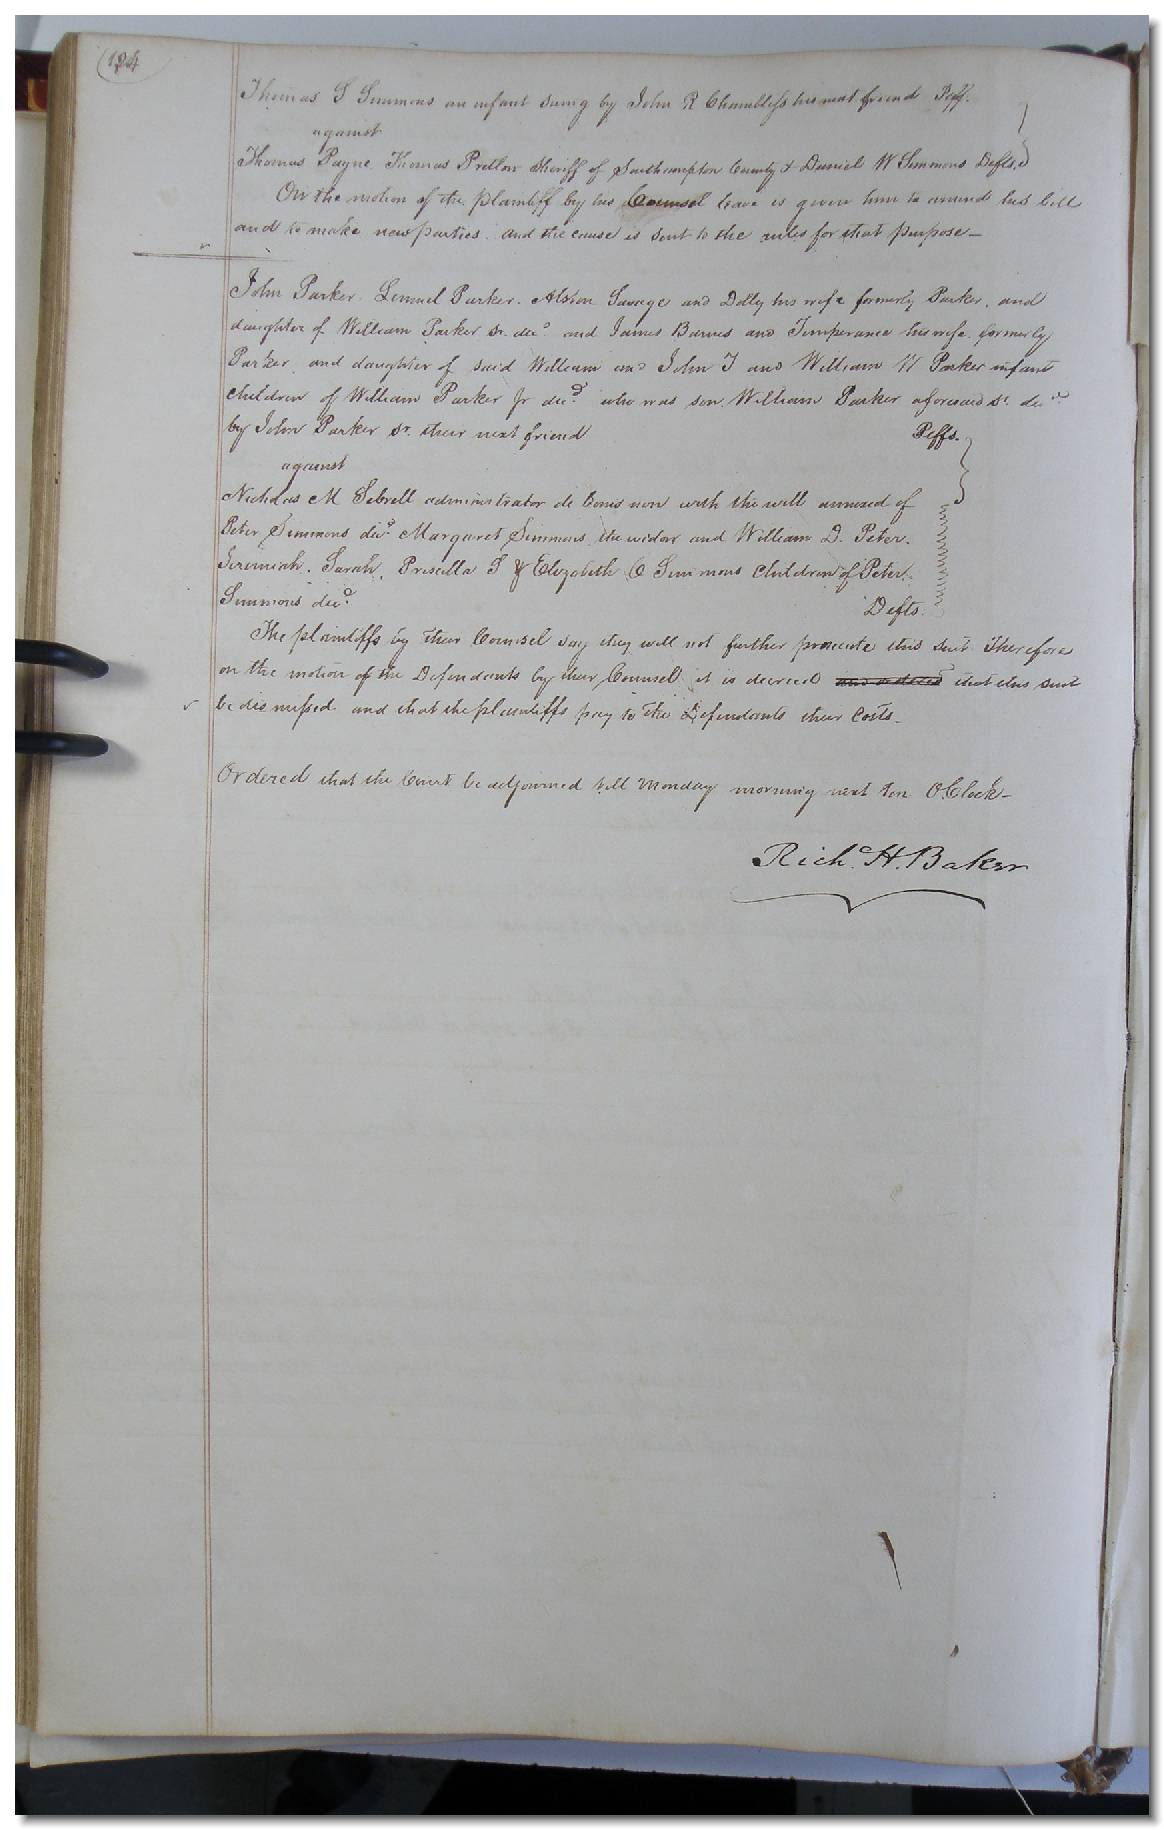 124
Thomas S Simmons an infant suing by John R Chambless his next friend Plff.
against
Thomas Payne Thomas Pretlow Sheriff of Southampton County & Daniel W Simmons Defts.
On the motion of the plaintiff by his Counsel leave is given him to amend his bill
and to make new parties and the cause is sent to the rules for that purpose—
John Parker. Lemuel Parker. Alston Savage and Dolly his wife formerly Parker, and
daughter of William Parker Sr. decd. and James Barnes and Temperance his wife formerly
Parker, and daughter of said William and John T and William H Parker infant
children of William Parker Jr decd. who was son William Parker aforesaid Sr. decd.
by John Parker Sr. their next friend Plffs.
against
Nicholas M Sebrell administrator de bonis non with the will annexed of
Peter Simmons decd. Margaret Simmons the widow and William D. Peter.
Jeremiah. Sarah, Priscilla S & Elizabeth C Simmons children of Peter.
Simmons decd. Defts.
The plaintiffs by their Counsel say they will not further prosecute this suit Therefore
on the motion of the Defendants by their Counsel it is decreed and ordered that this suit
be dismissed and that the plaintiffs pay to the Defendants their Costs.
Ordered that the Court be adjourned till Monday morning next ten O.Clock—
Richd. H. Baker